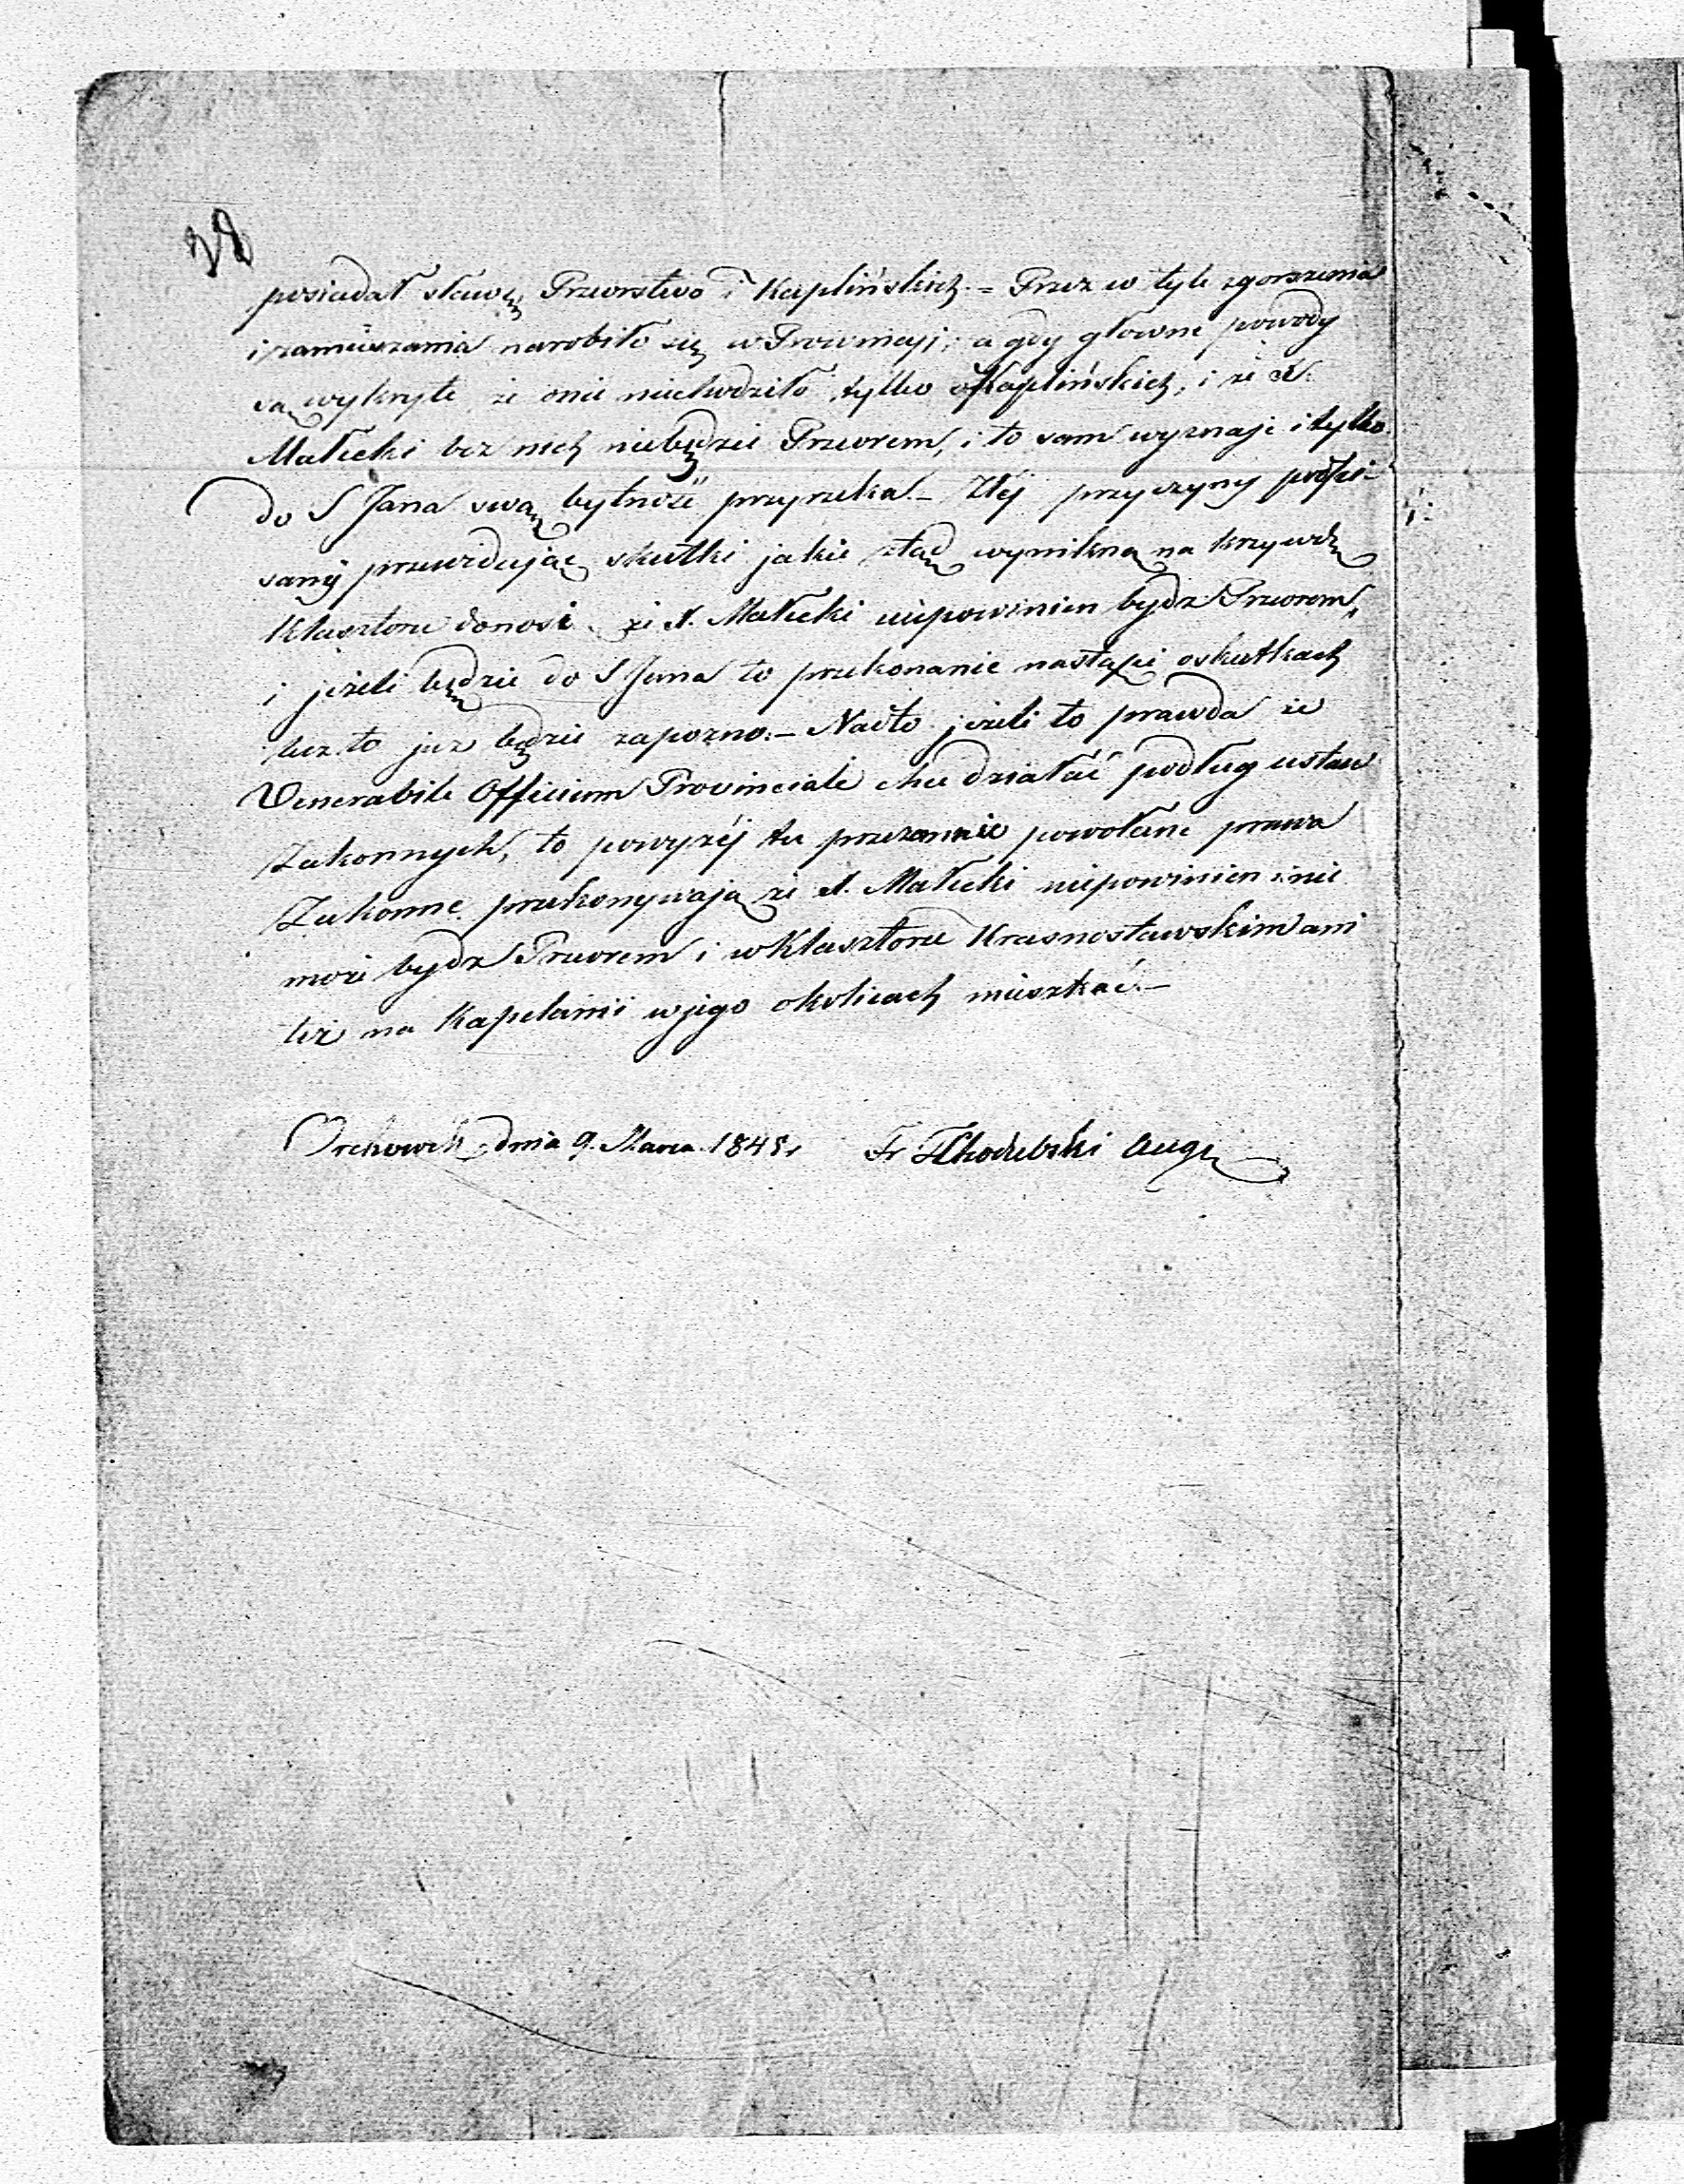 28
posiadał sławę Przeorstwo i Kaplińskich. = Przez w tyle zgorszenia
i zamieszania narobiło się w Prowincyi; a gdy głowne powody
są wykryte, że onie niechodziło, tylko o Kaplińskich, i że X.
Małecki bez nich niebędzie Przeorem, i to sam wyznaje i tylko
do S Jana swą bytność przyrzeka. – Ztej przyczyny podpi-
sany przewidując skutki jakie ztąd wynikną na krzywdę
Klasztoru donosi że X. Małecki niepowinien bydz Przeorem,
i jeżeli będzie do S Jana to przekonanie nastąpi oskutkach
lecz to już będzie zapozno. – Nadto jeżeli to prawda że
Venerabile Officium Provinciale chce działać podług ustaw
Zakonnych, to powyżéj tu przezemnie powołane prawa
Zakonne przekonywają że X. Małecki niepowinien i nie
może bydz Przeorem i w Klasztorze Krasnostawskim ani
też na Kapelanii w jego okolicach mieszkać. –
Orchowek dnia 9. Marca 1845r Fr Chodubski Aug: